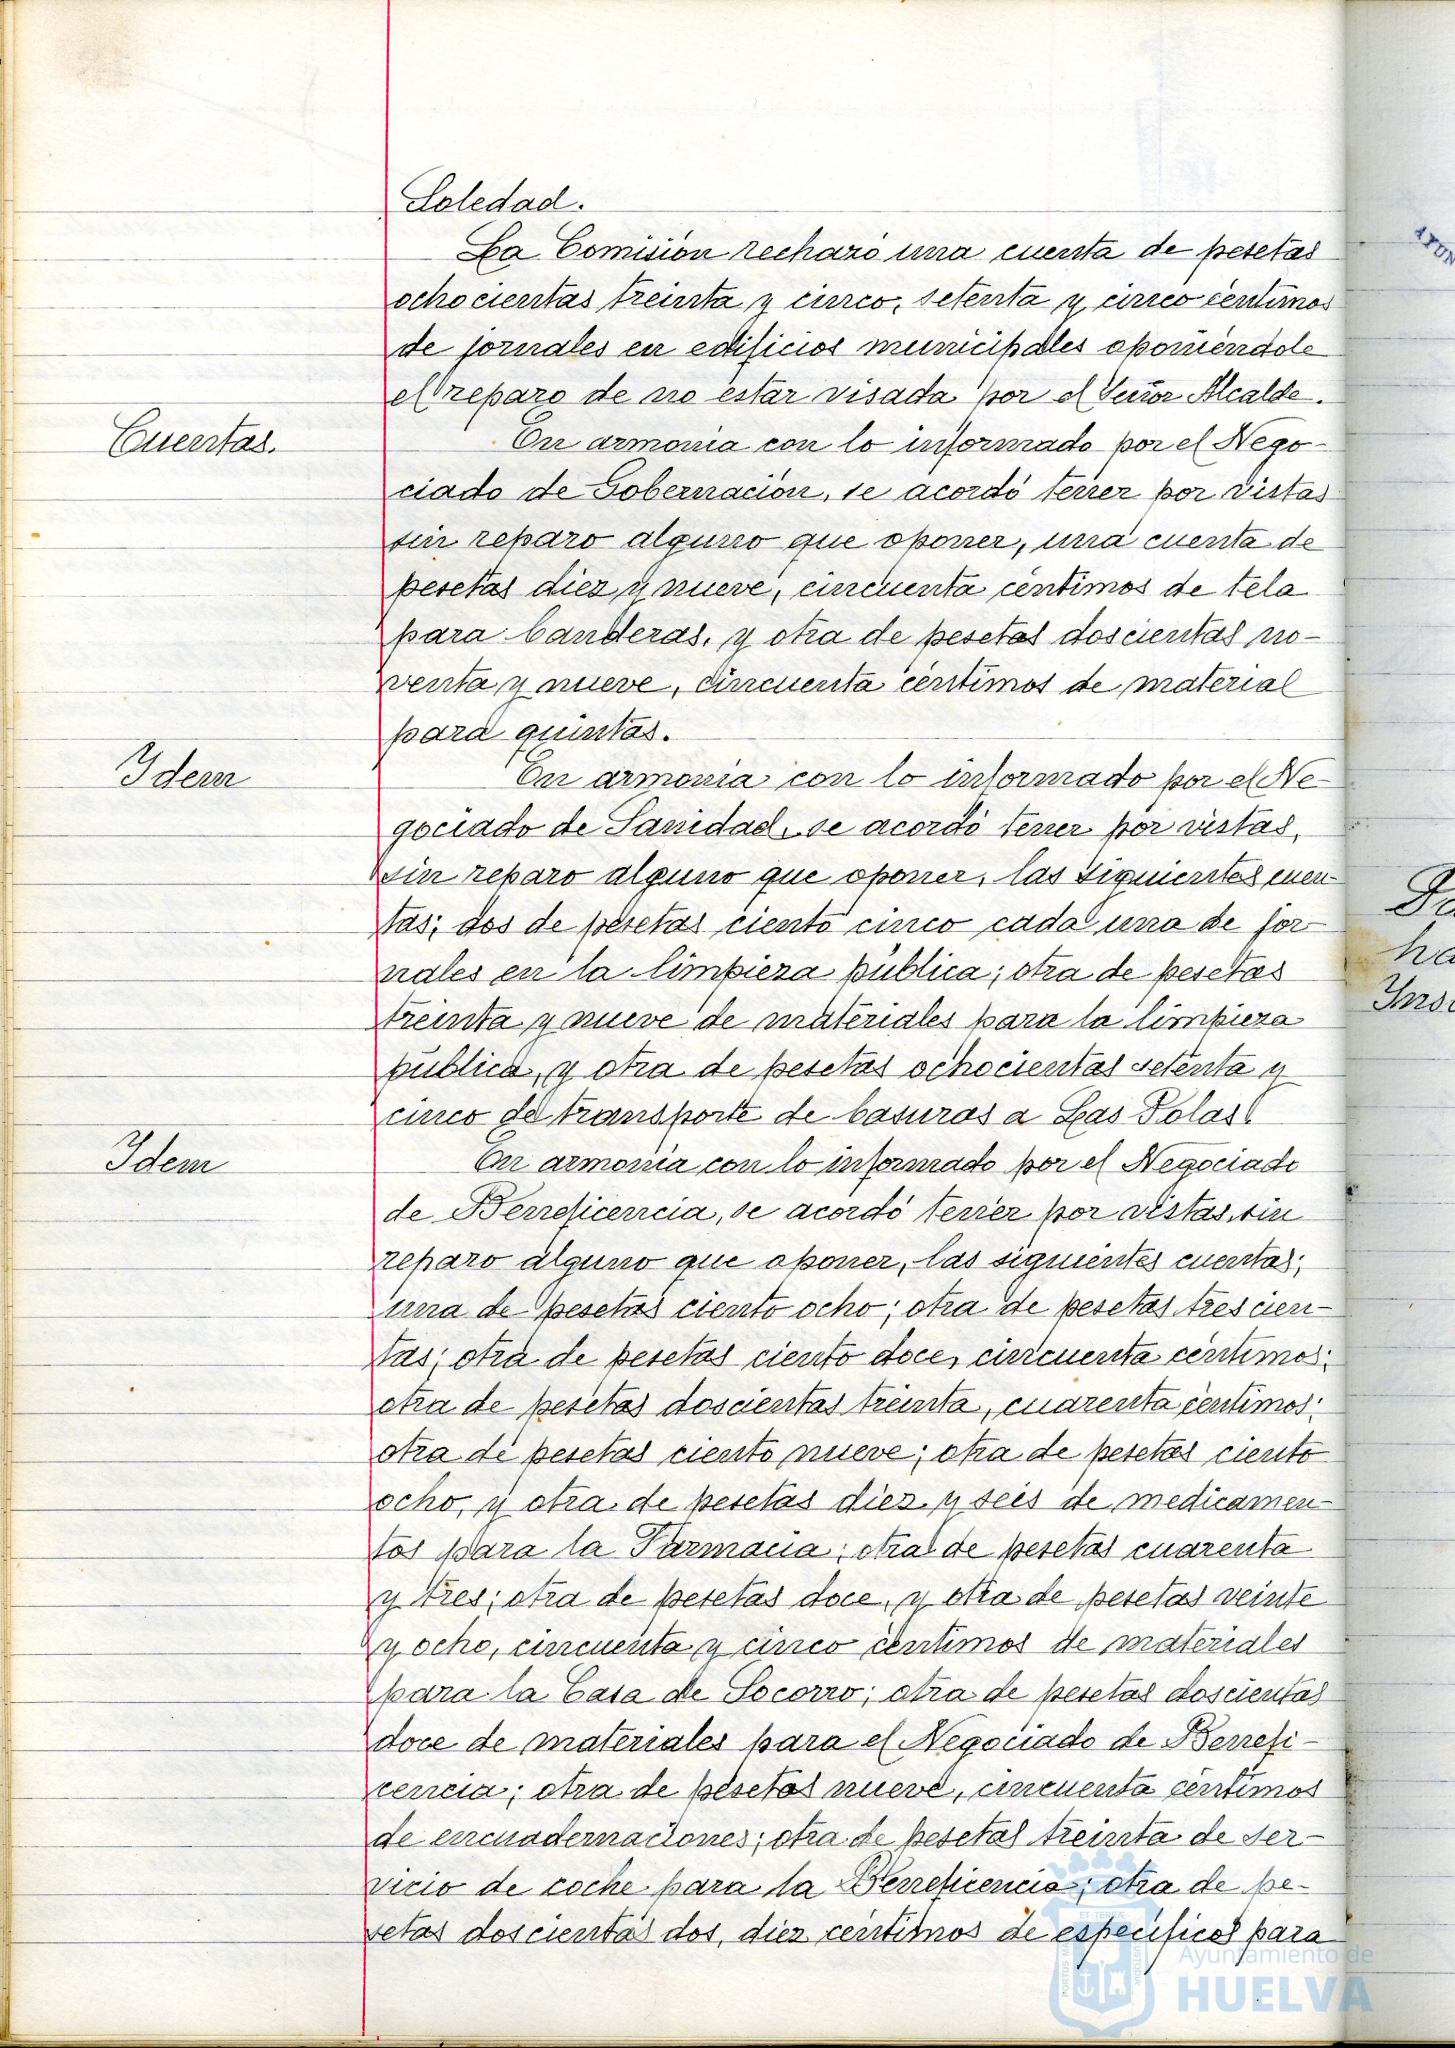 Soledad.
La Comisión rechazó una cuenta de pesetas
ochocientas treinta y cinco, setenta y cinco céntimos
de jornales en edificios municipales oponiéndole
el reparo de no estar visada por el Señor Alcalde.
Cuentas.
En armonia con lo informado por el Nego-
ciado de Gobernación, se acordó tener por vistas
sin reparo alguno que oponer, una cuenta de
pesetas diez y nueve, cincuenta céntimos de tela
para banderas, y otra de pesetas doscientas no-
venta y nueve, cincuenta céntimos de material
para quintas.
Idem
En armonia con lo informado por el Ne-
gociado de Sanidad, se acordó tener por vistas,
sin reparo alguno que oponer, las siguientes cuen-
tas; dos de pesetas ciento cinco cada una de jor-
nales en la limpieza pública; otra de pesetas
treinta y nueve de materiales para la limpieza
pública, y otra de pesetas ochocientas setenta y
cinco de transporte de basuras a Las Polas.
Idem
En armonia con lo informado por el Negociado
de Beneficencia, se acordó tener por vistas, sin
reparo alguno que oponer, las siguientes cuentas;
una de pesetas ciento ocho; otra de pesetas trescien-
tas; otra de pesetas ciento doce, cincuenta céntimos;
otra de pesetas doscientas treinta, cuarenta céntimos;
otra de pesetas ciento nueve; otra de pesetas ciento
ocho, y otra de pesetas diez y seis de medicamen-
tos para la Farmacia; otra de pesetas cuarenta
y tres; otra de pesetas doce, y otra de pesetas veinte
y ocho, cincuenta y cinco céntimos de materiales
para la Casa de Socorro; otra de pesetas doscientas
doce de materiales para el Negociado de Benefi-
cencia; otra de pesetas nueve, cincuenta céntimos
de encuadernaciones; otra de pesetas treinta de ser-
vicio de coche para la Beneficencia; otra de pe-
setas doscientas dos, diez céntimos de específicos para
Ayuntamiento de
HUELVA